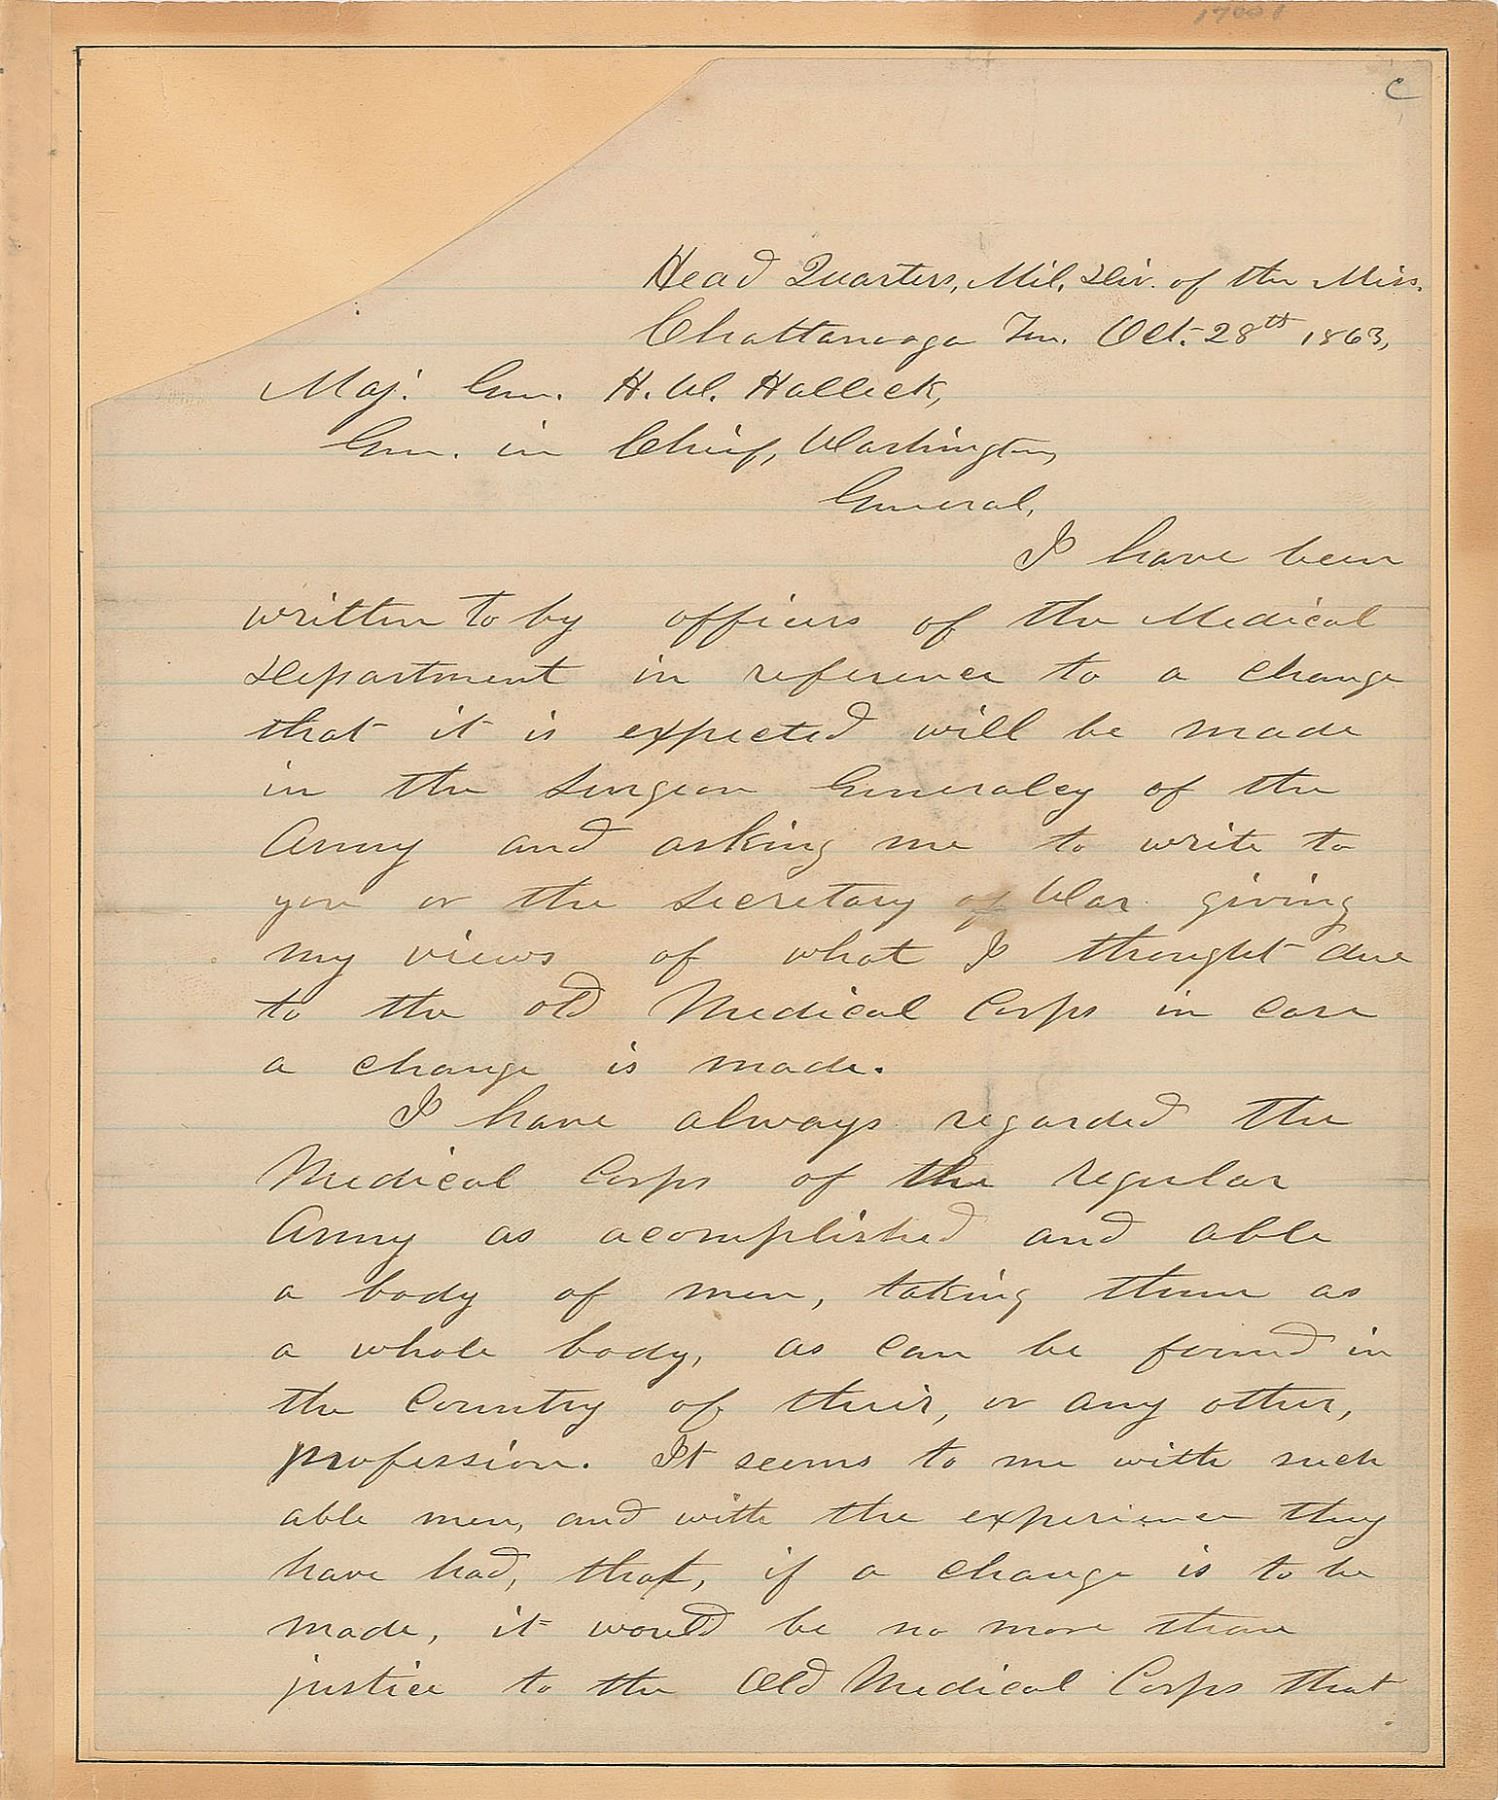 17001
C
Head Quarters, Mil. Div. of the Miss.
Chattanooga Ten. Oct. 28th 1863,
Maj. Gen. H. W. Halleck,
Gen. in Chief, Washington,
General,
I have been
written to by officers of the Medical
Department in reference to a change
that it is expected will be made
in the Surgeon Generalcy of the
Army and asking me to write to
you or the Secretary of War giving
my views of what I thought due
to the old Medical Corps in case
a change is made.
I have always regarded the
Medical Corps of the regular
Army as acomplished and able
a body of men, taking them as
a whole body, as can be found in
the Country of their, or any other,
profession. It seems to me with such
able men, and with the experience they
have had, that, if a change is to be
made, it would be no more than
justice to the Old Medical Corps that